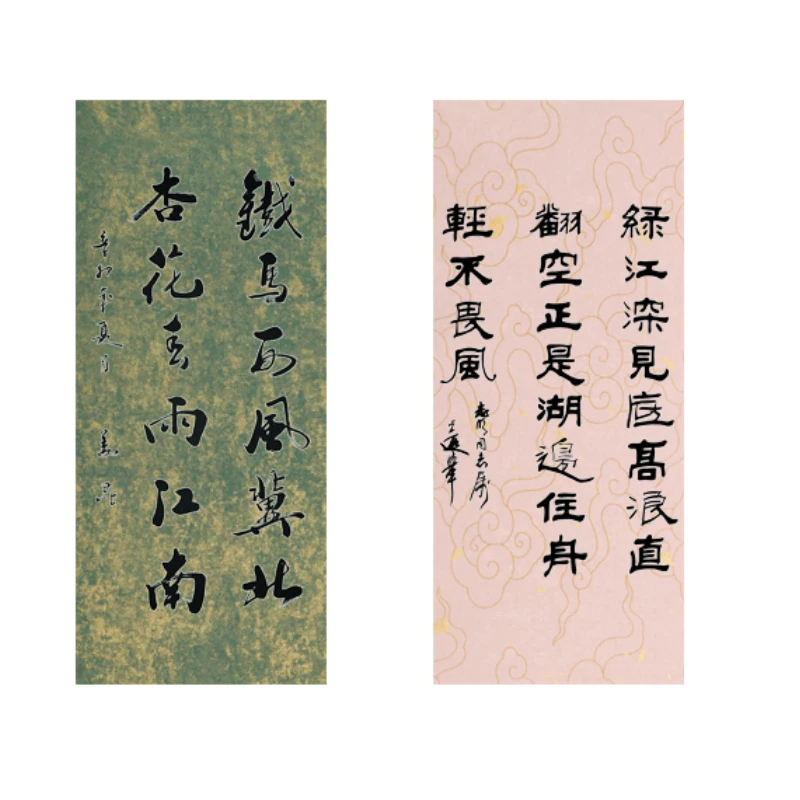 鐵馬西風冀北
杏花春雨江南
辛卯年夏月
緑江深見底高浪直
翻空正是湖邊住舟
輕不畏風
同志屬
王遐舉